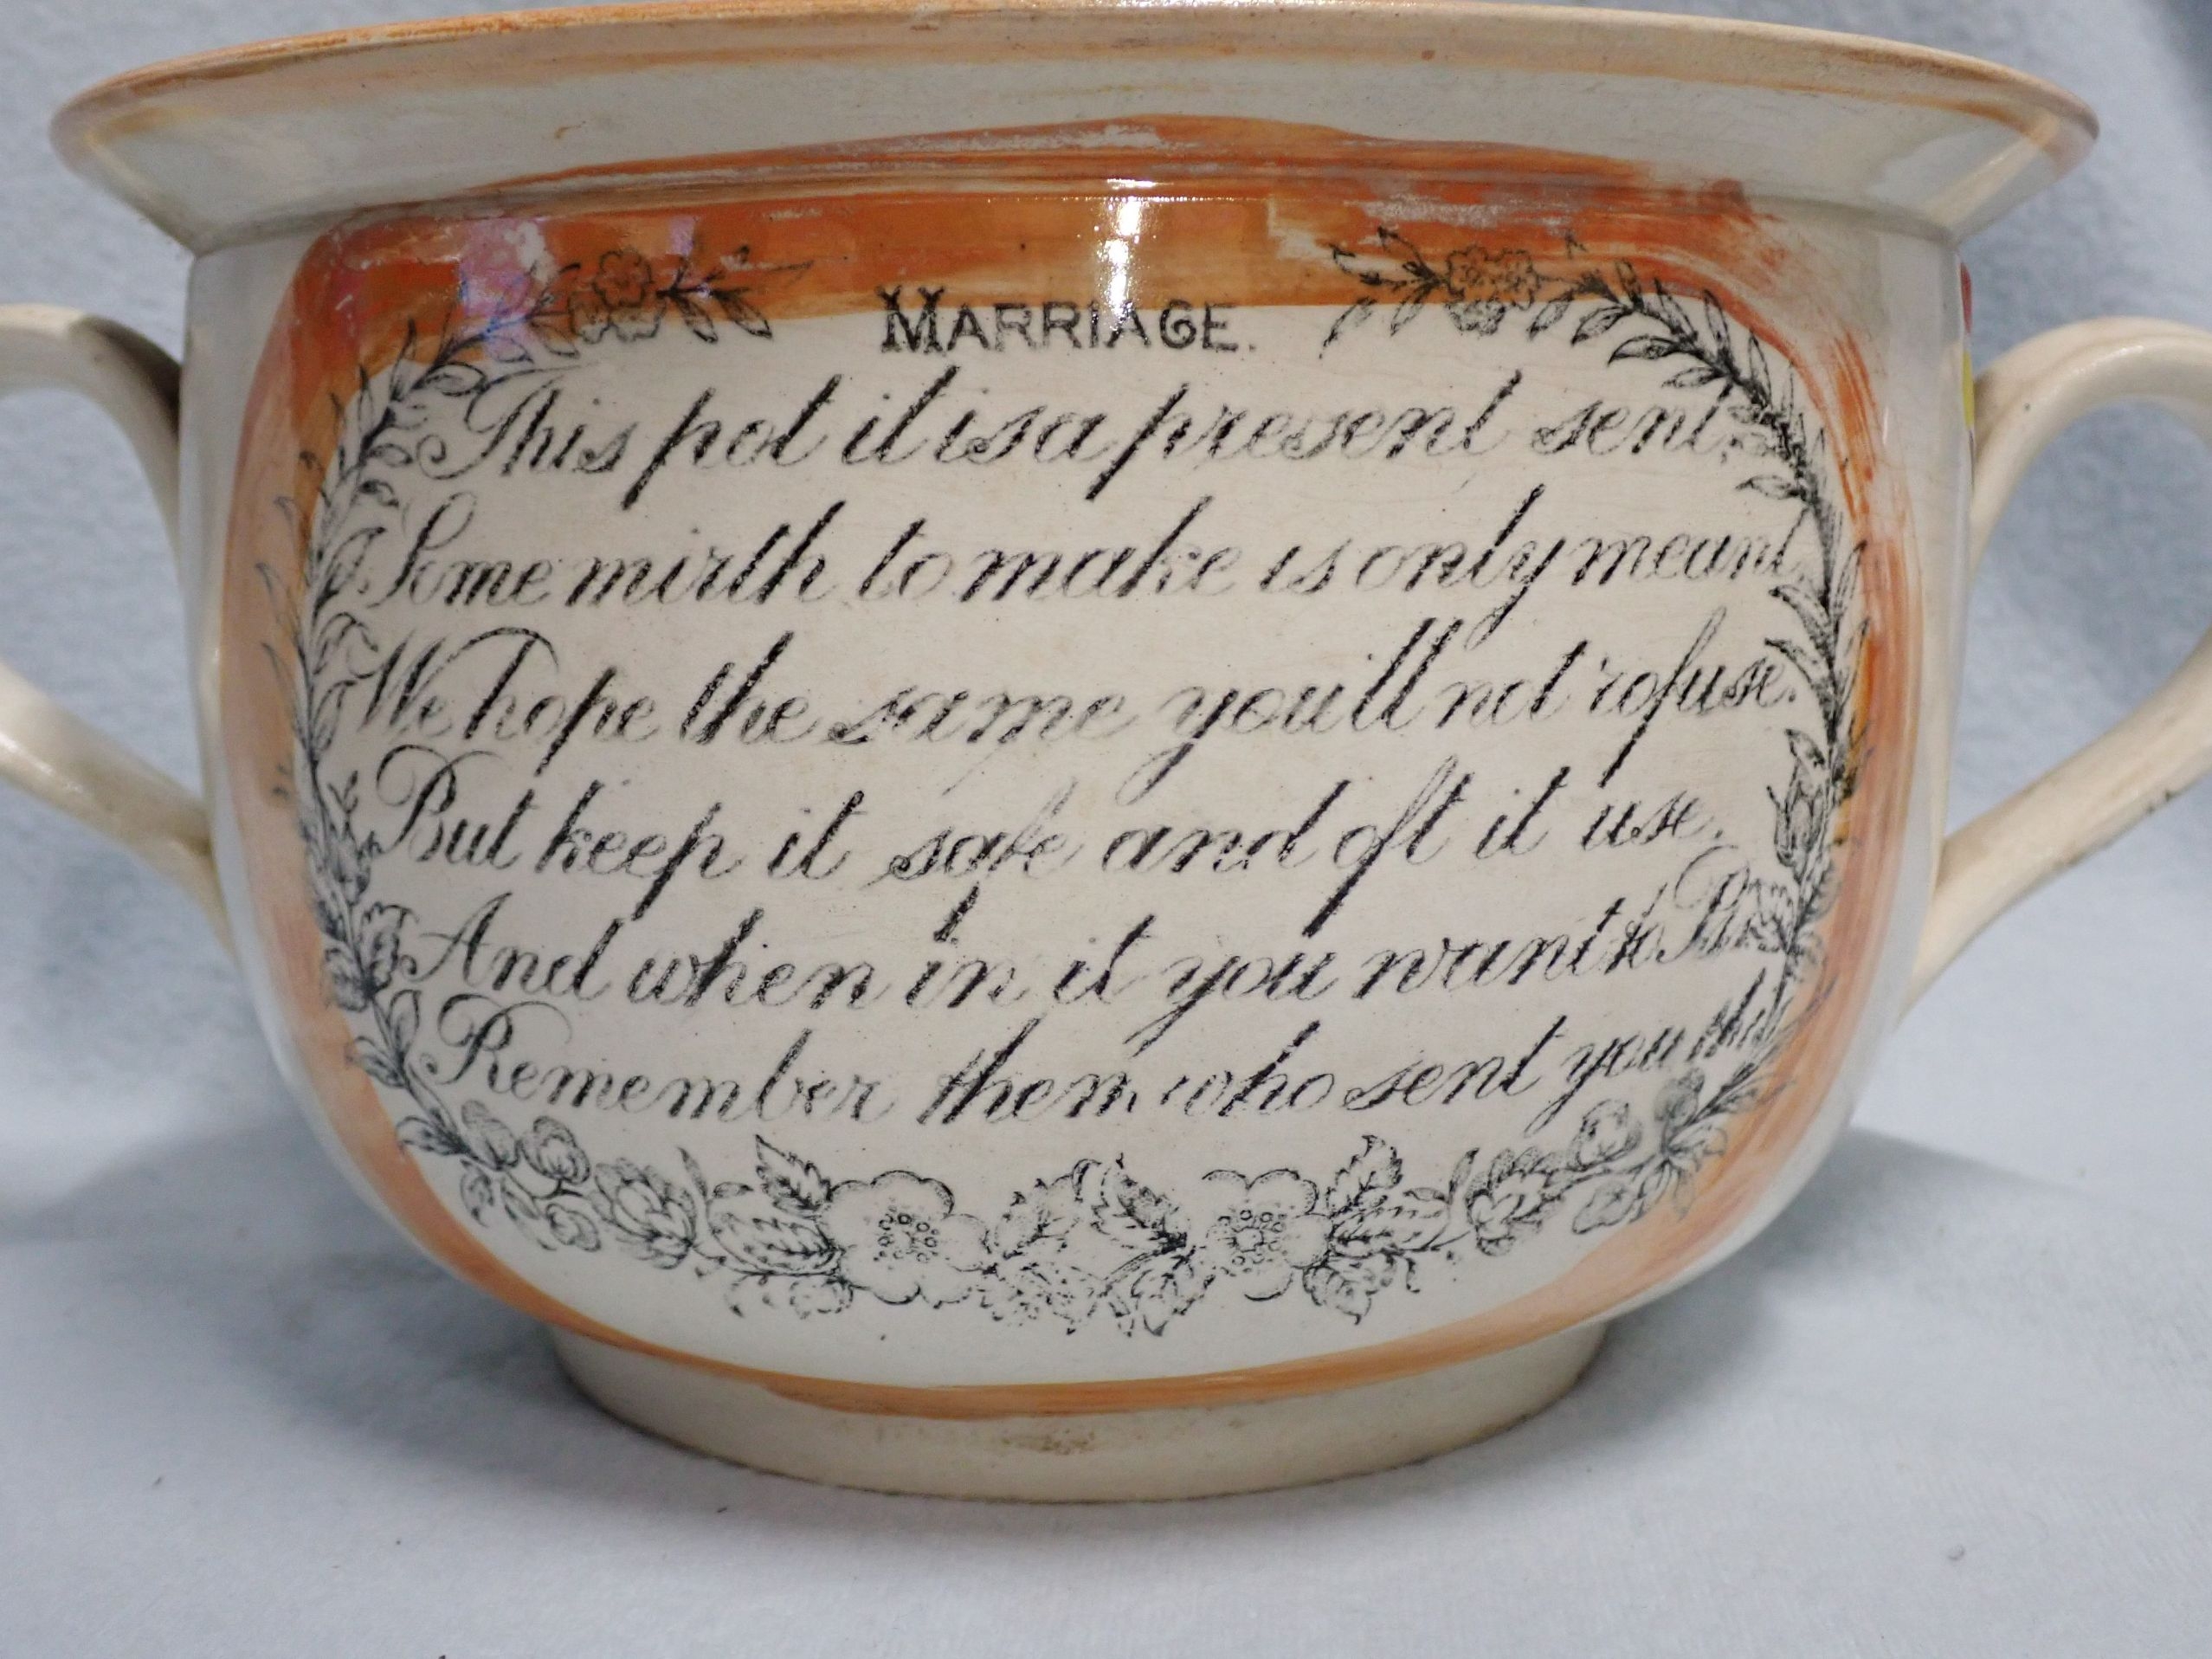 MARRIAGE.
This pot it is a present sent.
Some mirth to make is only meant,
We hope the same you'll not refuse.
But keep it safe and oft it use.
And when in it you want to
Remember them who sent you this